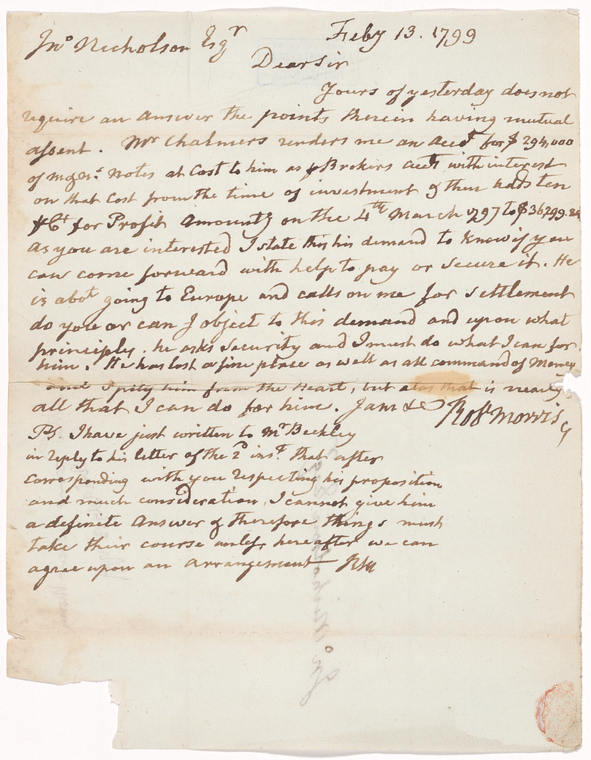 Jnº Nicholson Esqr Feby 13. 1799
Dear Sir
Yours of yesterday does not
require an answer the points therein having mutual
assent. Mr Chalmers renders me an acct for $ 294,000
of notes at Cost to him as with interest
on that Cost from the time of investment & then adds ten
for Profit Amountg on the 4th March 1797 to $36299.
As you are interested I state this his demand to know if you
can come forward with help to pay or secure it. He
is abot going to Europe and calls on me for settlement
do you or can I object to this demand and upon what
principles. he asks security and I must do what I can for
him. He has lost a fine place as well as all command of Money
and I pity him from the Heart, but alas that is nearly
all that I can do for him. I am &c Robt Morris
PS. I have just written to Mr Beckley
in reply to his letter of the 2d inst. that after
corresponding with you respecting his proposition
and much consideration, I cannot give him
a definite Answer & therefore things must
take their course unless hereafter we can
agree upon an arrangement RM